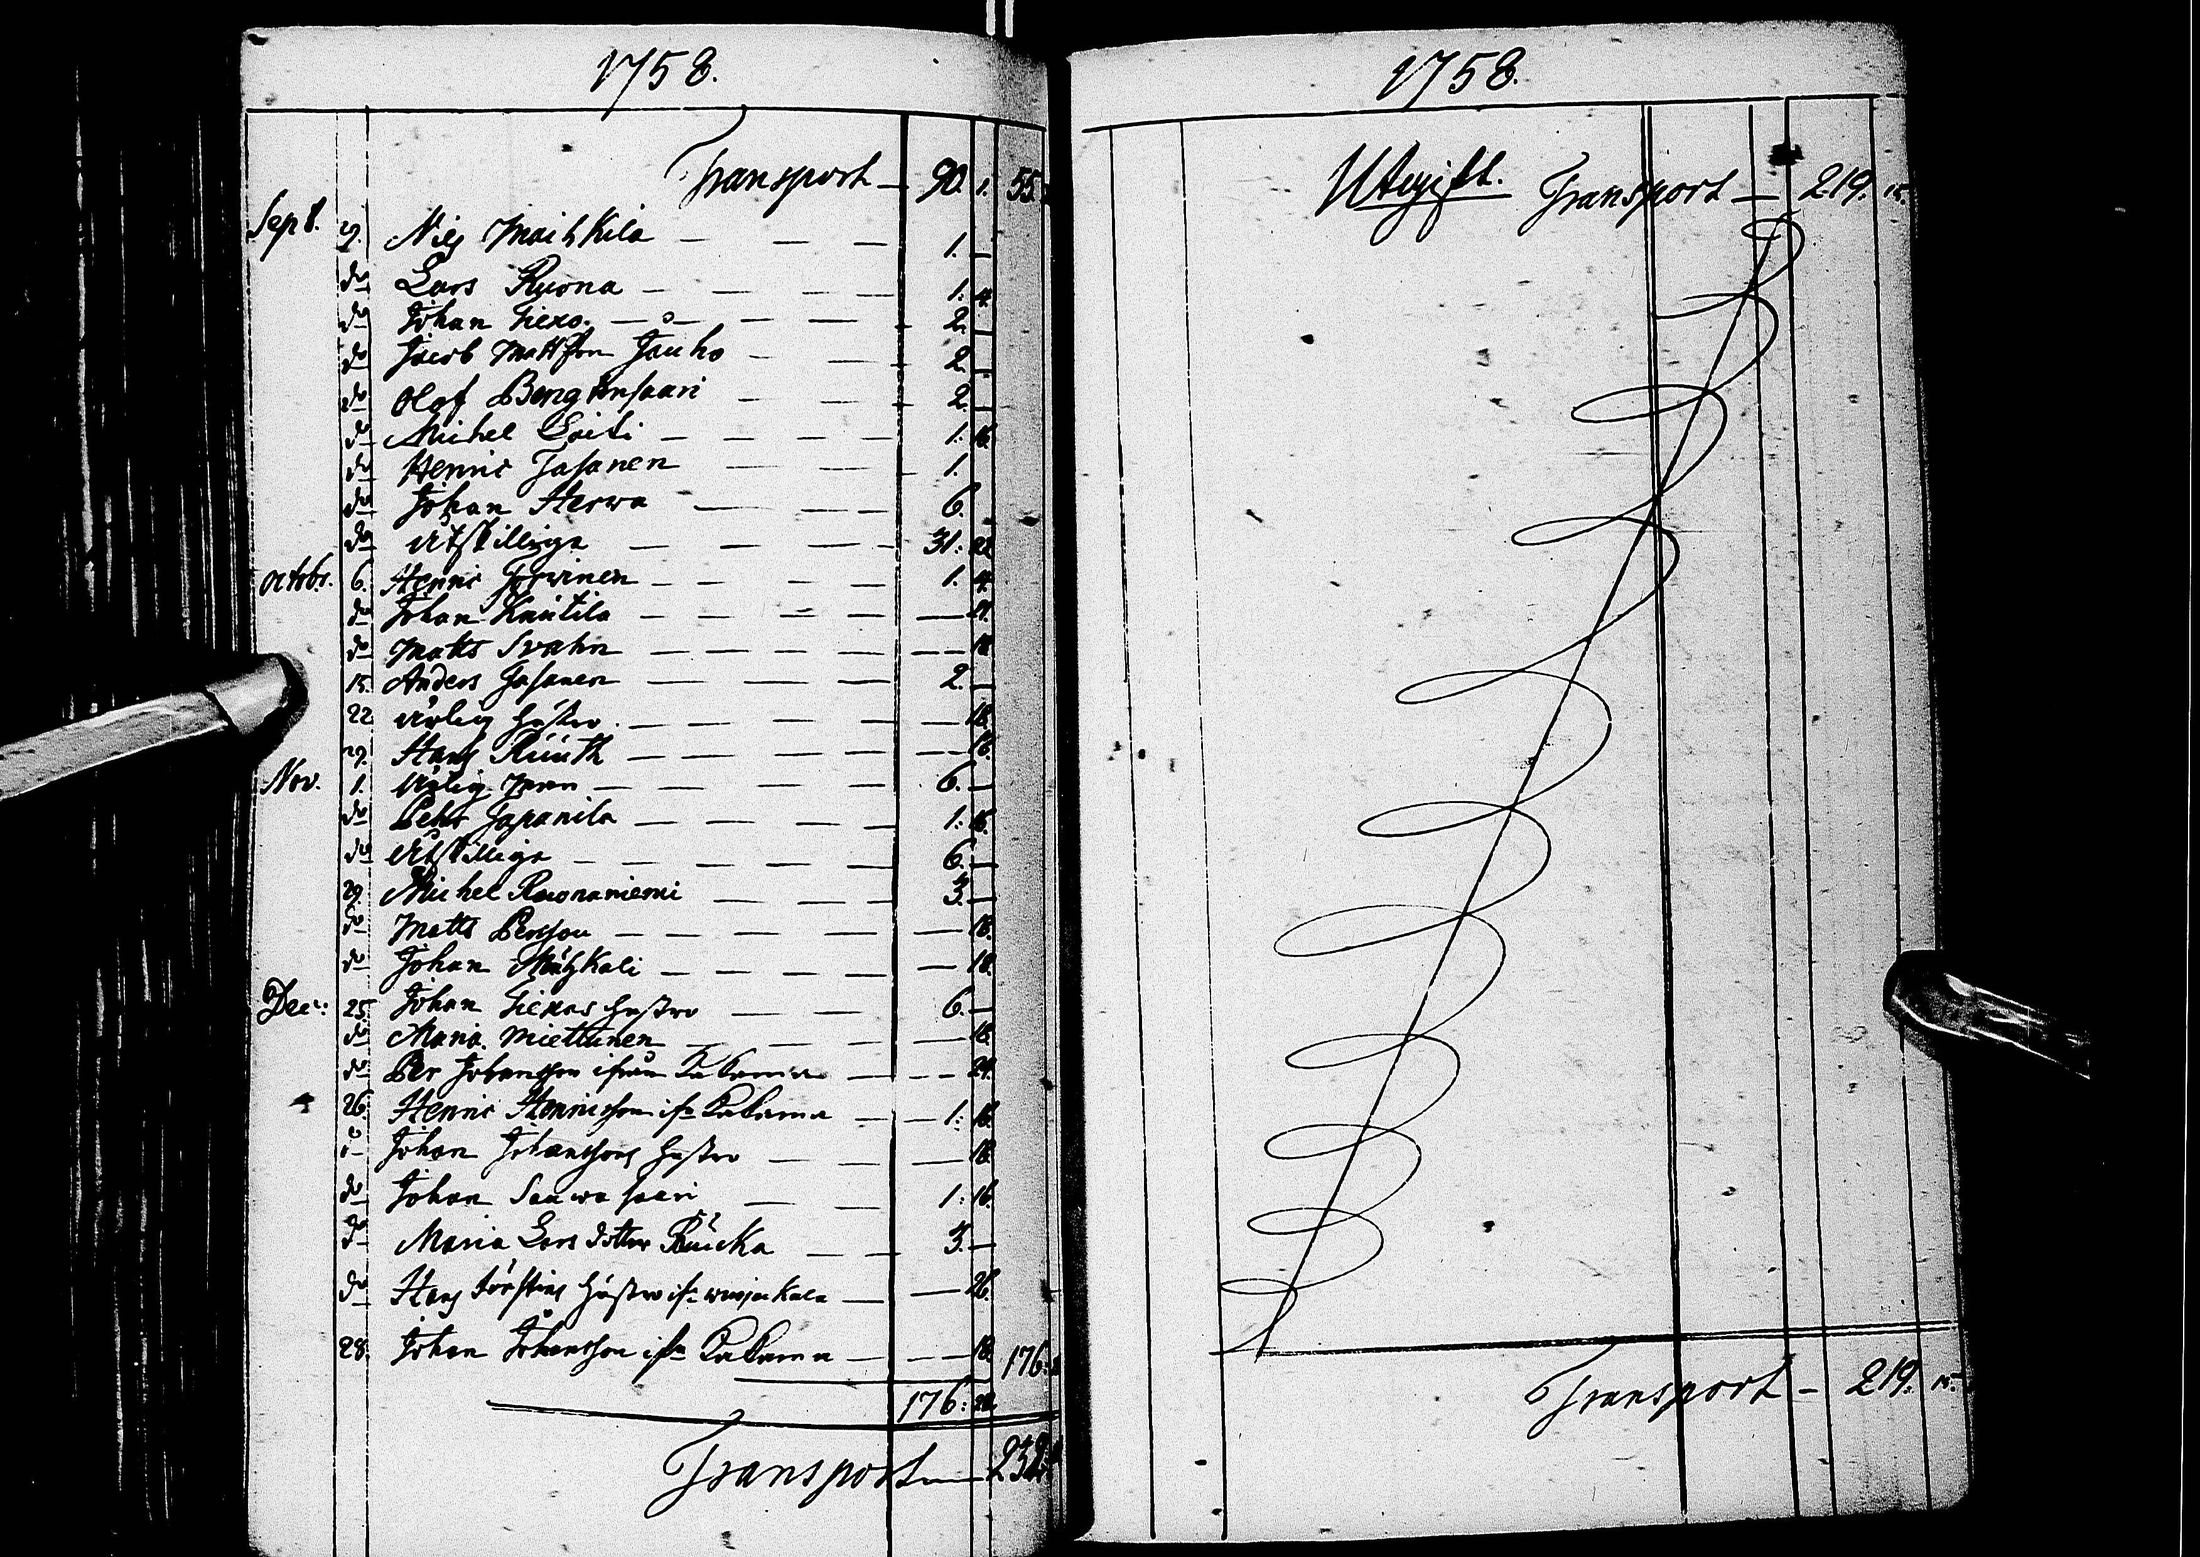 1758.
Transport — 90. 1. 55.
Sept. 29. Nils — — — — 1. —
do Lars Ruona — — — — 1: 4.
do Johan — — — — 2. —
do Jacob Mattsson Jauho — — 2. —
do Olof Bengtinsaari — — — 2. —
do Michel — — — — 1. 16.
do Henric Jasanen — — — 1. —
do Johan Herwa — — — 6. —
do Åtskillige — — — — 31: 22
octob. 6. Henric — — — — 1. 4.
do Johan Kautila — — — —
do Matts Svahn — — — — — 18.
15. Anders Jasanen — — — — 2. —
22. hustro — — — — — 18.
29. Hans Ruuth — — — — — 16.
Nov. 1. — — — — 6. —
do Pehr Japanila — — — — 1: 16.
do Åtskillige — — — — — 6. —
29. Michel Ruonaniemi — — — 3. —
do Matts Persson — — — — — 18.
do Johan — — — — — 18.
Dec: 25. Johan hustro — — 6. —
do Maria Miettunen — — — — 18.
do Per Johansson ifrån Kakama — — — 24.
26. Henric Henricsson ifr. Kakama — — 1: 16.
do Johan Johanssons hustro — — — 18.
do Johan Sauwasaari — — 1: 16.
do Maria Lars dotter — — 3. —
do Hans hustro ifr. — — 26.
28. Johan Johansson ifr. Kakama — — — 18. 176:
176: 22.
Transport — 232.
1758.
Utgift. Transport — 219. 15.
Transport — 219. 15.